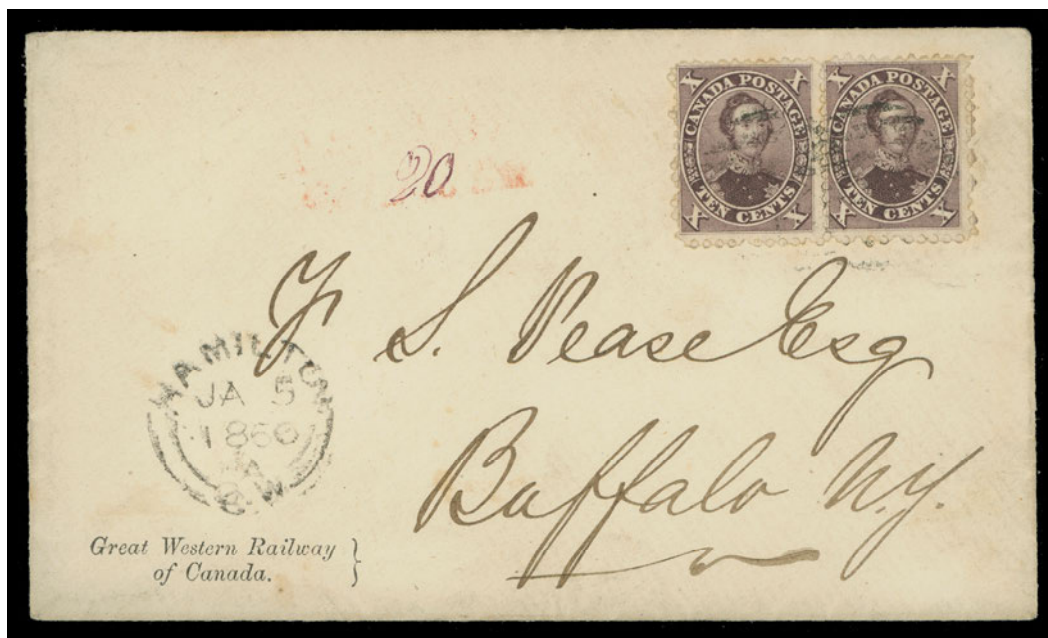 X CANADA POSTAGE X
X TEN CENTS X
X CANADA POSTAGE X
X TEN CENTS X
20
F. S. Pease Esq
Buffalo N.Y.
HAMILTON
JA 5
1860
C.W.
Great Western Railway }
of Canada.